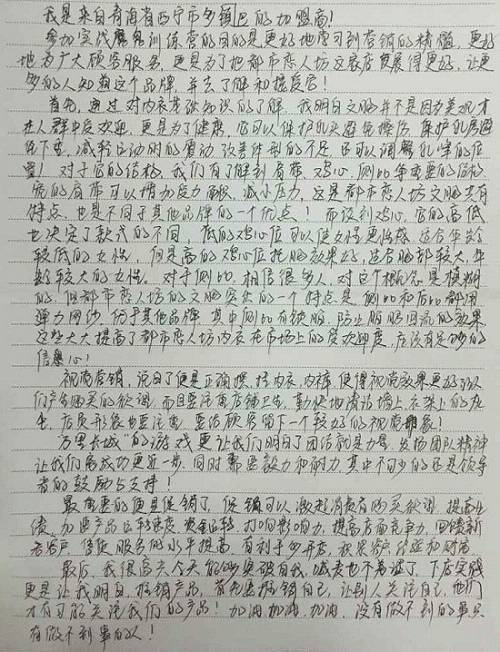 我是来自青海省西宁市多镇巴的加盟商!
参加实战魔鬼训练营的目的是更好地学习到营销的精髓,更好
地为广大顾客服务,更是为了把都市恋人坊这家店发展得更好,让更
多的人知道这个品牌,并去了解和接受它!
首先,通过对内衣基础知识的了解,我明白文胸并不是因为美观才
在人群中受欢迎,更是为了健康,它可以保护乳头避免擦伤,保护乳房避
免下垂,减轻运动时的震动,改善体型的不足,还可以调整乳峰的位
置!对于它的结构,我们有了解到肩带,鸡心,侧比等重要的结构
宽的肩带可以增加受力面积,减小压力,这是都市恋人坊文胸共有
特点,也是不同于其他品牌的一个优点!而谈到鸡心,它的高低
也决定了款式的不同,低的鸡心位可以使女性更性感,适合年龄
较低的女性,但是高的鸡心位托胸效果好,适合胸部较大,年
龄较大的女性。对于侧比,相信很多人,对这个概念是模糊
的,但都市恋人坊的文胸突出的一个特点是,侧比和后比都用
弹力网纱,优于其他品牌,其中侧比有铁胶,防止脂肪回流的效果
这些大大提高了都市恋人坊内衣在市场上的受欢迎度,店没有足够的
信心!
视商营销,说白了便是正确摆挂内衣,内裤,使得视商效果更好以
们产生购买的欲望,而且要注意店铺卫生,勤快地清洁墙上,衣架上的灰
尘,店员形象也要注意,要给顾客留下一个较好的视商印象!
"万里长城"的游戏更让我们明白了团结就是力量,发扬团队精神
让我们离成功更近一步,同时需要毅力和耐力,其中不可少的还是领导
者的鼓励与支持!
最重要的便是促销了,促销可以激起消费者购买欲望,提高业
绩,加速产品运转速度,资金运转,打响影响力,提高店面竞争力,回馈新
老客户,督促服务的水平提高,有利于多开店,积累客户,经验和财富
最后,我很高兴今天能够突破自我,喊麦也不羞涩了,下店实践
更是让我明白,推销产品,首先要推销自己,让别人关注自己,他们
才有可能关注我们的产品!加油加油,加油,没有做不到的事只
有做不到事的人!